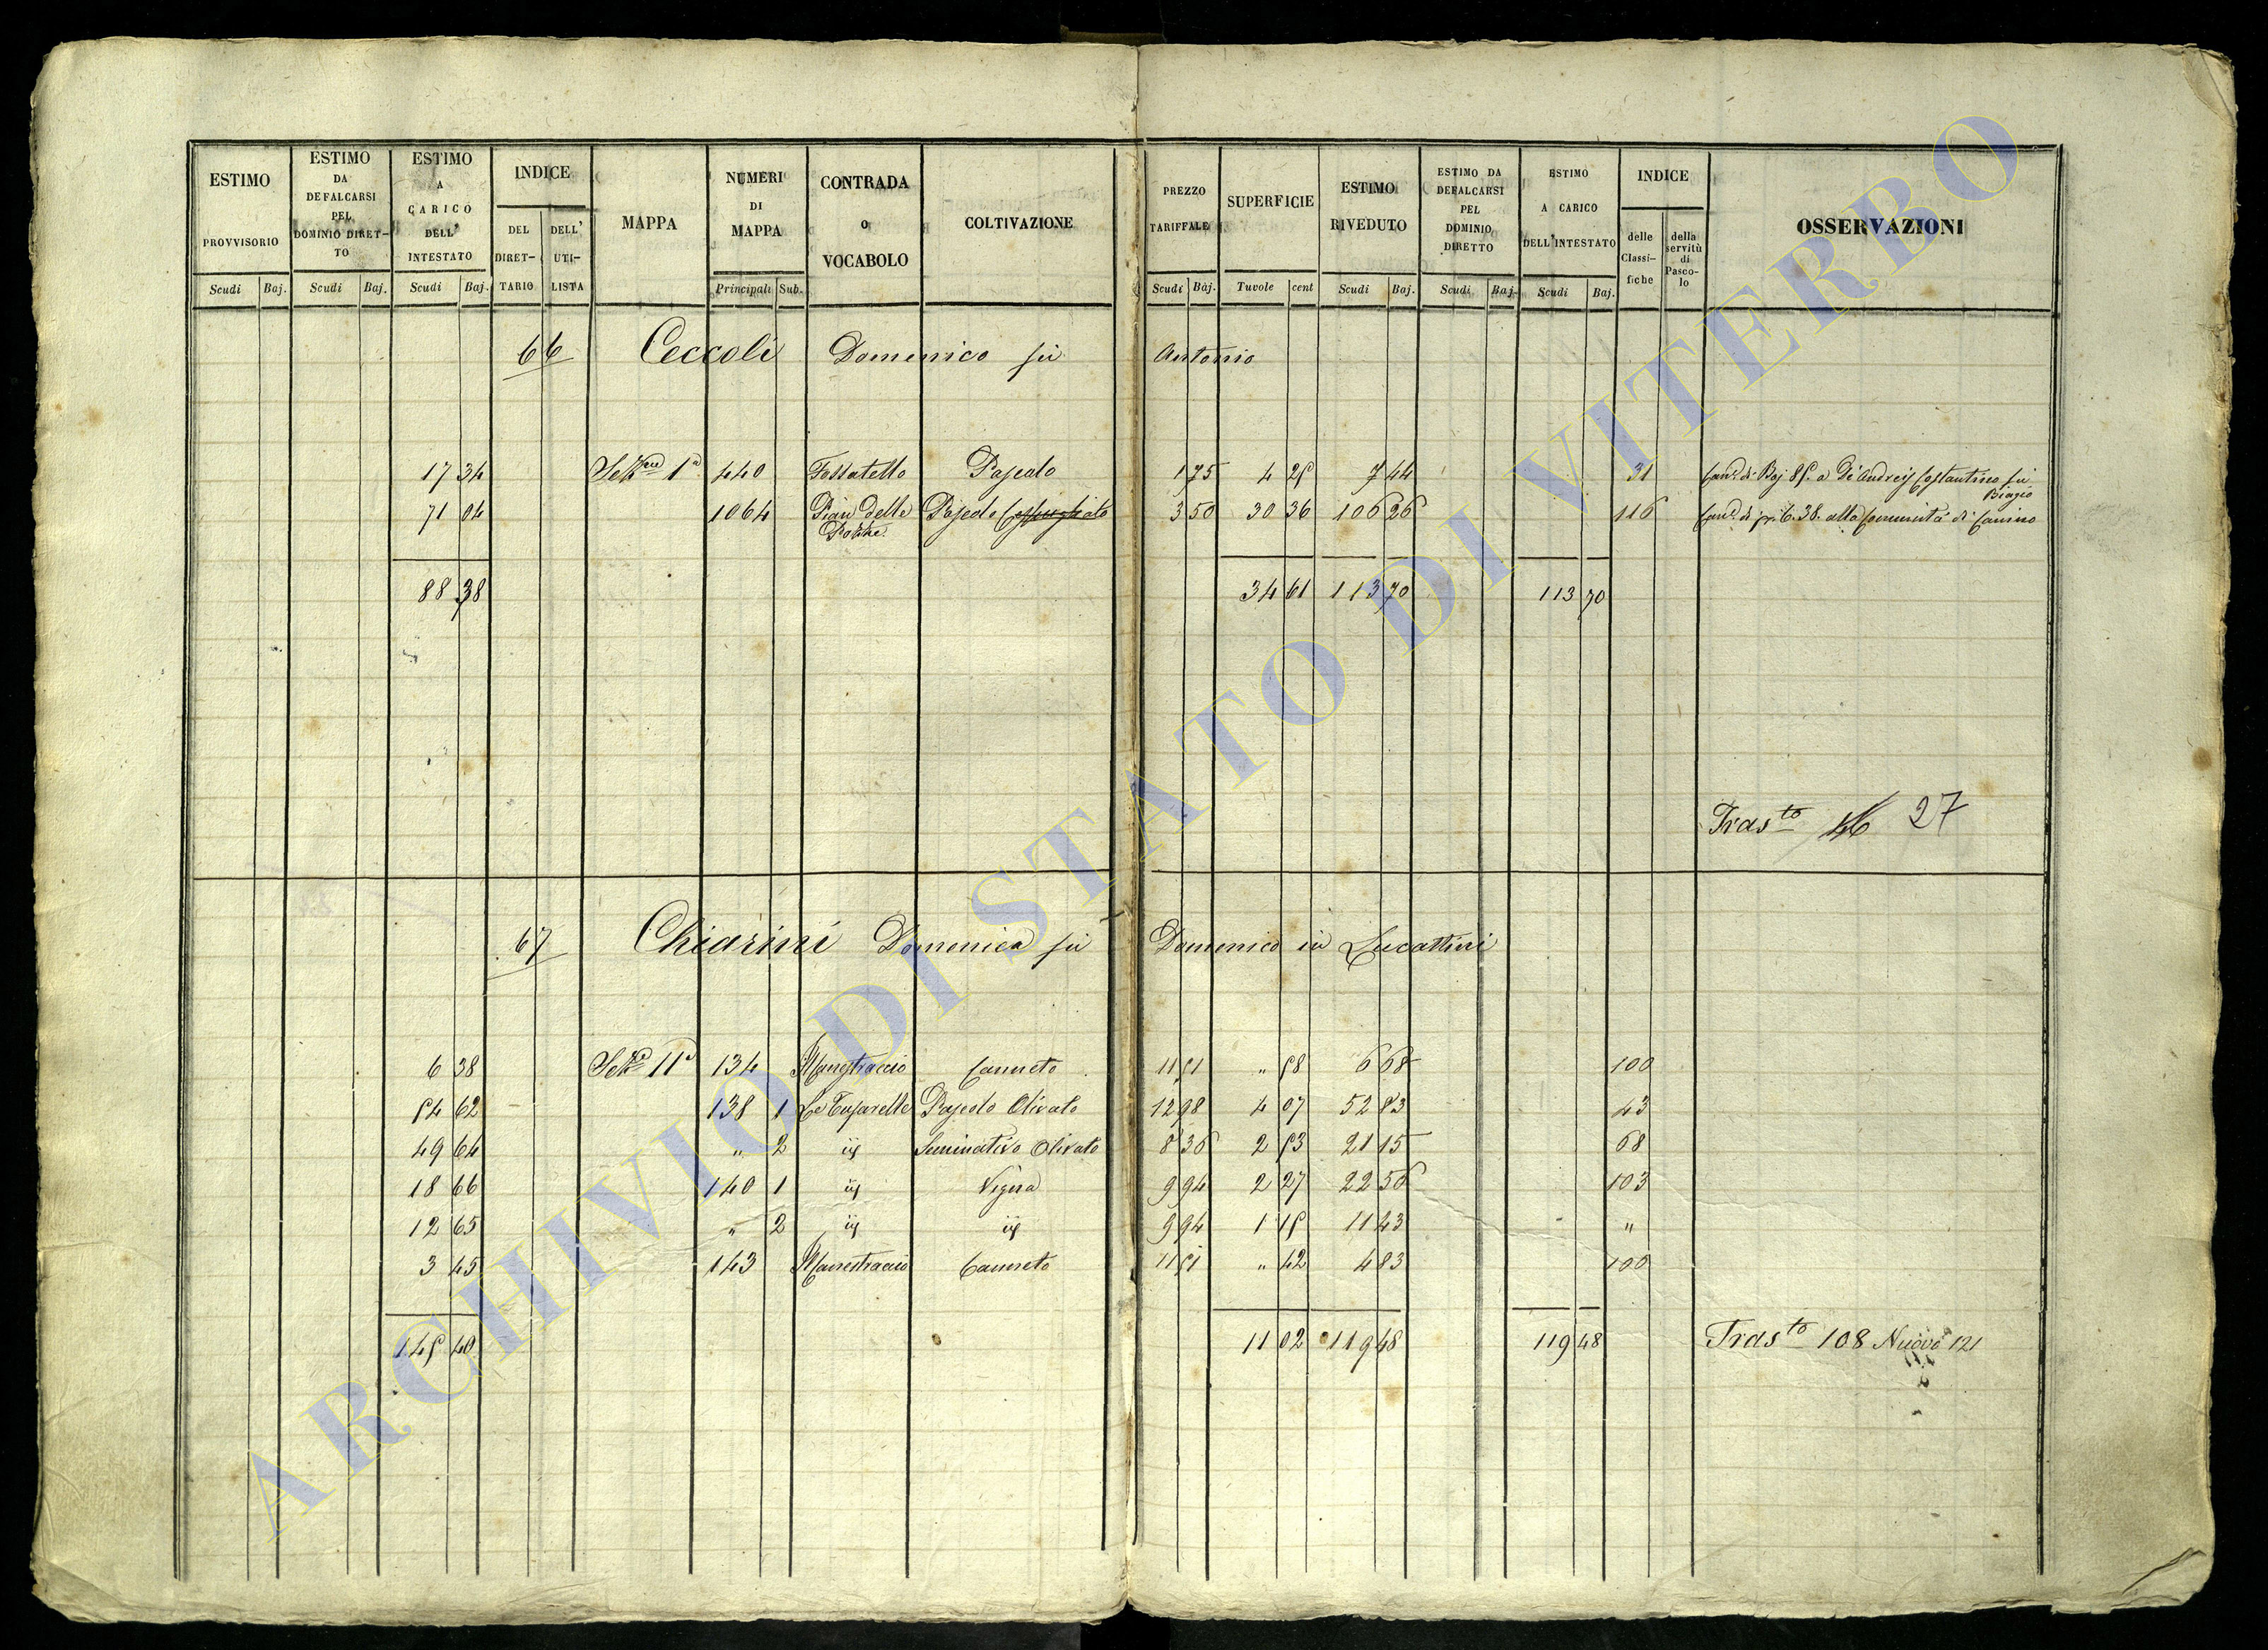 ESTIMO PROVVISORIO Scudi Baj.
ESTIMO DA DEFALCARSI PEL DOMINIO DIRET-TO Scudi Baj.
ESTIMO A CARICO DELL' INTESTATO Scudi Baj.
INDICE DEL DIRET-TARIO DELL' UTI-LISTA
MAPPA
NUMERI DI MAPPA Principali Sub.
CONTRADA o VOCABOLO
COLTIVAZIONE
PREZZO TARIFFALE Scudi Baj.
SUPERFICIE Tavole cent
ESTIMO RIVEDUTO Scudi Baj.
ESTIMO DA DEFALCARSI PEL DOMINIO DIRETTO Scudi Baj.
ESTIMO A CARICO DELL'INTESTATO Scudi Baj.
INDICE delle Classi-fiche della servitù di Pasco-lo
OSSERVAZIONI
66 Ceccoli Domenico fù Antonio
17 34 Sez.ne 1a 440 Fossatello Pascolo 1 75 4 25 7 44 31 Can.e di Baj 85. a De Andreis Costantino fù Biagio
71 04 1064 Pian delle Pozze Pascolo 3 50 30 36 106 26 116 Can.e di 6.38. alla Comunità di Canino
88 38 34 61 113 70 113 70
Tras.to 46 27
67 Chiarini Domenica fù Domenico in Lucattini
6 38 Sez.e 11a 134 Canneto 11 51 " 58 6 68 100
54 62 138 1 Le Tufarelle Pascolo Olivato 12 98 4 07 52 83 43
49 64 " 2 id Seminativo Olivato 8 36 2 53 21 15 68
18 66 140 1 id Vigna 9 94 2 27 22 56 103
12 65 " 2 id id 9 94 1 15 11 43 "
3 45 143 Canneto 11 51 " 42 4 83 100
145 40 11 02 119 48 119 48 Tras.to 108 Nuovo 121
ARCHIVIO DI STATO DI VITERBO